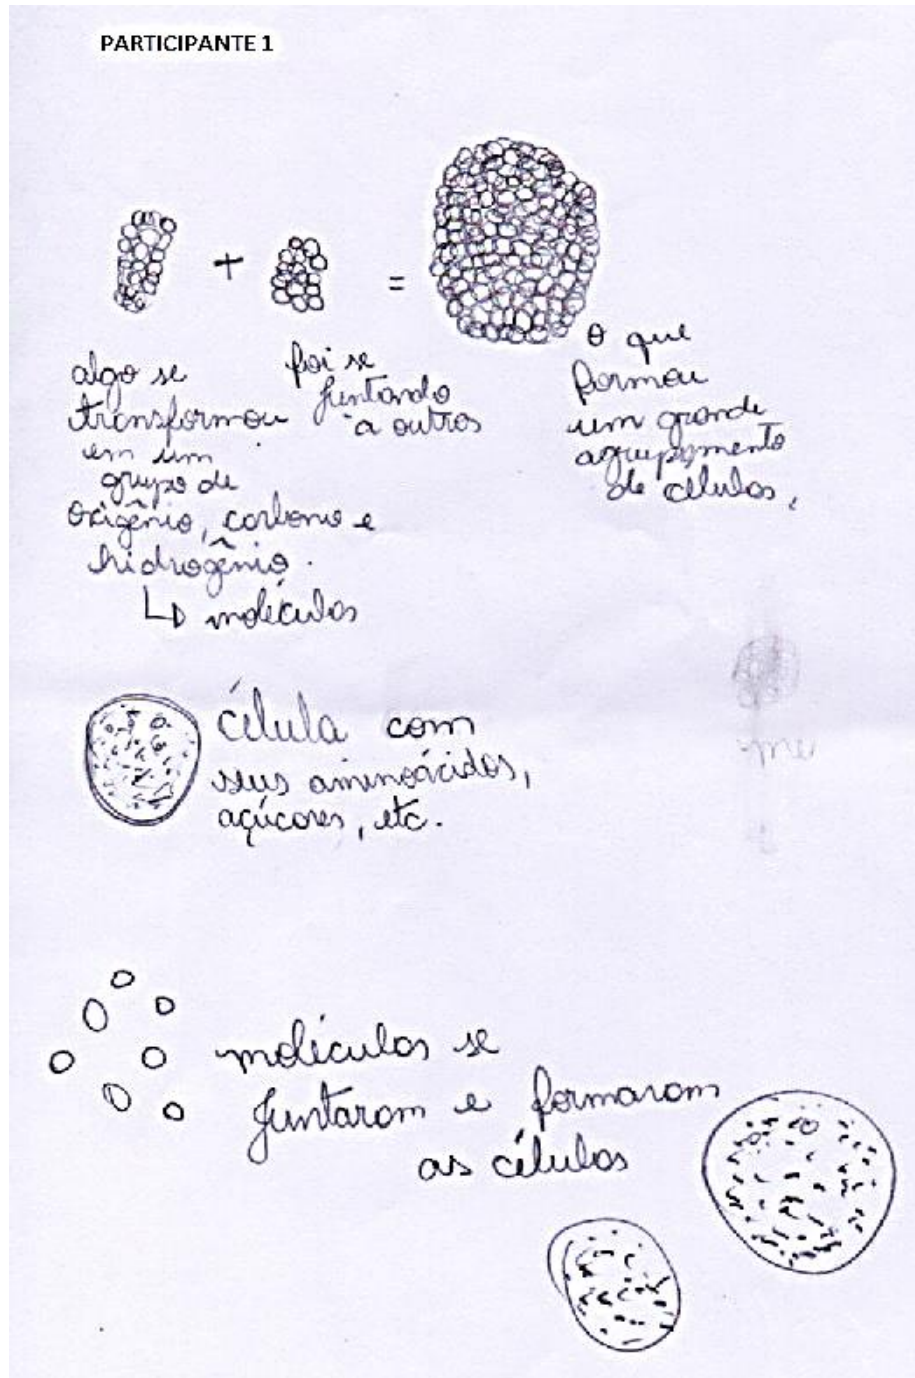 PARTICIPANTE 1
+
=
algo se
transformou
em um
grupo de
oxigênio, carbono e
hidrogênio.
↳ moléculas
foi se
juntando
à outros
O que
formou
um grande
agrupamento
de células.
Célula com
seus aminoácidos,
açúcares, etc.
me
moléculas se
juntaram e formaram
as células